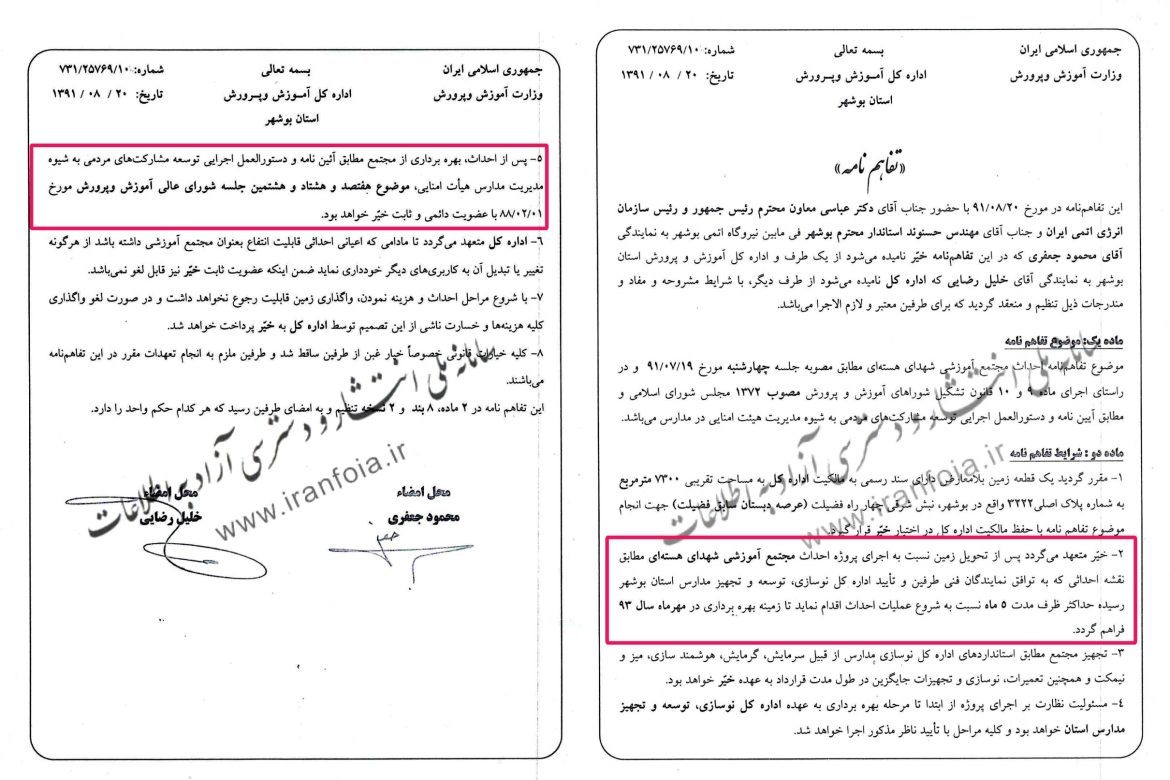 جمهوری اسلامی ایران
بسمه تعالی
شماره: ۷۳۱/۲۵۷۶۹/۱۰
وزارت آموزش وپرورش
اداره کل آمـوزش وپـرورش
تاریخ: ۲۰ / ۰۸ / ۱۳۹۱
استان بوشهر
«تفاهم نامه»
این تفاهم‌نامه در مورخ ۹۱/۰۸/۲۰ با حضور جناب آقای دکتر عباسی معاون محترم رئیس جمهور و رئیس سازمان
انرژی اتمی ایران و جناب آقای مهندس حسنوند استاندار محترم بوشهر فی مابین نیروگاه اتمی بوشهر به نمایندگی
آقای محمود جعفری که در این تفاهم‌نامه خیّر نامیده می‌شود از یک طرف و اداره کل آموزش و پرورش استان
بوشهر به نمایندگی آقای خلیل رضایی که اداره کل نامیده می‌شود از طرف دیگر، با شرایط مشروحه و مفاد و
مندرجات ذیل تنظیم و منعقد گردید که برای طرفین معتبر و لازم الاجرا می‌باشد.
ماده یک: موضوع تفاهم نامه
موضوع تفاهم‌نامه احداث مجتمع آموزشی شهدای هسته‌ای مطابق مصوبه جلسه چهارشنبه مورخ ۹۱/۰۷/۱۹ و در
راستای اجرای ماده ۹ و ۱۰ قانون تشکیل شوراهای آموزش و پرورش مصوب ۱۳۷۲ مجلس شورای اسلامی و
مطابق آیین نامه و دستورالعمل اجرایی توسعه مشارکت‌های مردمی به شیوه مدیریت هیئت امنایی در مدارس می‌باشد.
ماده دو : شرایط تفاهم نامه
۱- مقرر گردید یک قطعه زمین بلامعارض دارای سند رسمی به مالکیت اداره کل به مساحت تقریبی ۷۳۰۰ مترمربع
به شماره پلاک اصلی۳۲۲۲ واقع در بوشهر، نبش شرقی چهار راه فضیلت (عرصه دبستان سابق فضیلت) جهت انجام
موضوع تفاهم نامه با حفظ مالکیت اداره کل در اختیار خیّر قرار گیرد.
۲- خیّر متعهد می‌گردد پس از تحویل زمین نسبت به اجرای پروژه احداث مجتمع آموزشی شهدای هسته‌ای مطابق
نقشه احداثی که به توافق نمایندگان فنی طرفین و تأیید اداره کل نوسازی، توسعه و تجهیز مدارس استان بوشهر
رسیده حداکثر ظرف مدت ۵ ماه نسبت به شروع عملیات احداث اقدام نماید تا زمینه بهره برداری در مهرماه سال ۹۳
فراهم گردد.
۳- تجهیز مجتمع مطابق استانداردهای اداره کل نوسازی مدارس از قبیل سرمایش، گرمایش، هوشمند سازی، میز و
نیمکت و همچنین تعمیرات، نوسازی و تجهیزات جایگزین در طول مدت قرارداد به عهده خیّر خواهد بود.
۴- مسئولیت نظارت بر اجرای پروژه از ابتدا تا مرحله بهره برداری به عهده اداره کل نوسازی، توسعه و تجهیز
مدارس استان خواهد بود و کلیه مراحل با تأیید ناظر مذکور اجرا خواهد شد.
سامانه ملی انتشار و دسترسی آزاد به اطلاعات
www.iranfoia.ir
جمهوری اسلامی ایران
بسمه تعالی
شماره: ۷۳۱/۲۵۷۶۹/۱۰
وزارت آموزش وپرورش
اداره کل آمـوزش وپـرورش
تاریخ: ۲۰ / ۰۸ / ۱۳۹۱
استان بوشهر
۵- پس از احداث، بهره برداری از مجتمع مطابق آئین نامه و دستورالعمل اجرایی توسعه مشارکت‌های مردمی به شیوه
مدیریت مدارس هیأت امنایی، موضوع هفتصد و هشتاد و هشتمین جلسه شورای عالی آموزش وپرورش مورخ
۸۸/۰۲/۰۱ با عضویت دائمی و ثابت خیّر خواهد بود.
۶- اداره کل متعهد می‌گردد تا مادامی که اعیانی احداثی قابلیت انتفاع بعنوان مجتمع آموزشی داشته باشد از هرگونه
تغییر یا تبدیل آن به کاربری‌های دیگر خودداری نماید ضمن اینکه عضویت ثابت خیّر نیز قابل لغو نمی‌باشد.
۷- با شروع مراحل احداث و هزینه نمودن، واگذاری زمین قابلیت رجوع نخواهد داشت و در صورت لغو واگذاری
کلیه هزینه‌ها و خسارت ناشی از این تصمیم توسط اداره کل به خیّر پرداخت خواهد شد.
۸- کلیه خیارات قانونی خصوصاً خیار غبن از طرفین ساقط شد و طرفین ملزم به انجام تعهدات مقرر در این تفاهم‌نامه
می‌باشند.
این تفاهم نامه در ۲ ماده، ۸ بند و ۲ نسخه تنظیم و به امضای طرفین رسید که هر کدام حکم واحد را دارد.
محل امضاء
محل امضاء
محمود جعفری
خلیل رضایی
سامانه ملی انتشار و دسترسی آزاد به اطلاعات
www.iranfoia.ir